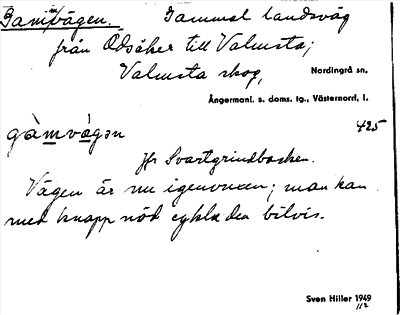 Gammvägen. Gammal landsväg
från Ödsåker till Valmsta;
Valmsta skog,
Nordingrå sn,
Ångermanl. s. doms. tg., Västernorrl. l.
gàmvágən 425
Jfr Svartgrindbacken.
Vägen är nu igenvuxen; man kan
med knapp nöd cykla den bitvis.
Sven Hiller 1949